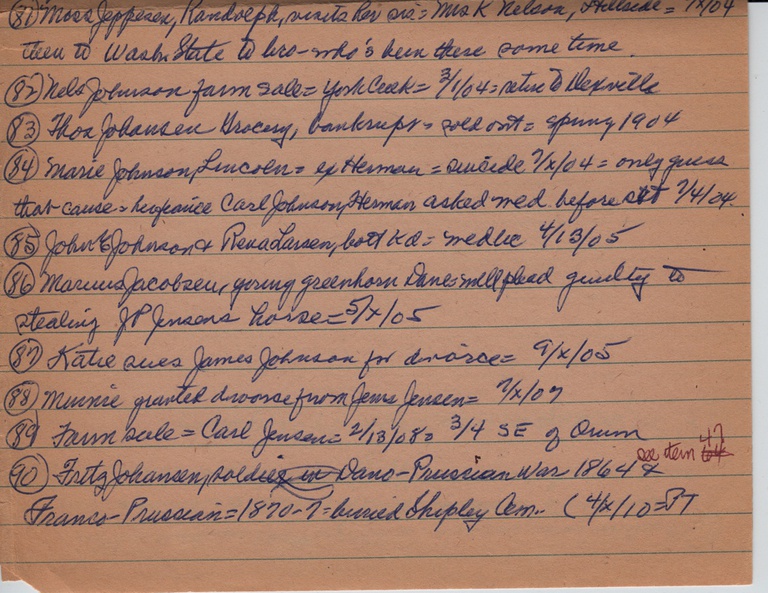 (81) Moss Jeppesen, Randolph, visits her sis = Mrs K Nelson, Hillside = 1x/04
then to Wash. State to bro - who's been there some time.
(82) Nels Johnson farm sale = York Creek = 3/1/04 = retire to Dexville
(83) Thos Johansen Grocery, bankrupt = sold out = spring 1904
(84) Marie Johnson, Lincoln = ex Herman = suicide 7/x/04 = only guess
that cause = Carl Johnson, Herman asked med. before 7/4/04.
(85) John E Johnson & Rena Larsen, both Kd = wed lic 4/13/05
(86) Marcus Jacobsen, young greenhorn Dane = will plead guilty to
stealing J P Jensens horse = 5/x/05
(87) Katie sues James Johnson for divorce = 9/x/05
(88) Minnie granted divorce from Jens Jensen = 7/x/07
(89) Farm sale = Carl Jensen = 2/13/08 = 3/4 SE of Orum
see item 47
(90) Fritz Johansen, soldier in Dano-Prussian War 1864 &
Franco-Prussian = 1870-7 = buried Shipley Cem.. (4/x/10 = PT